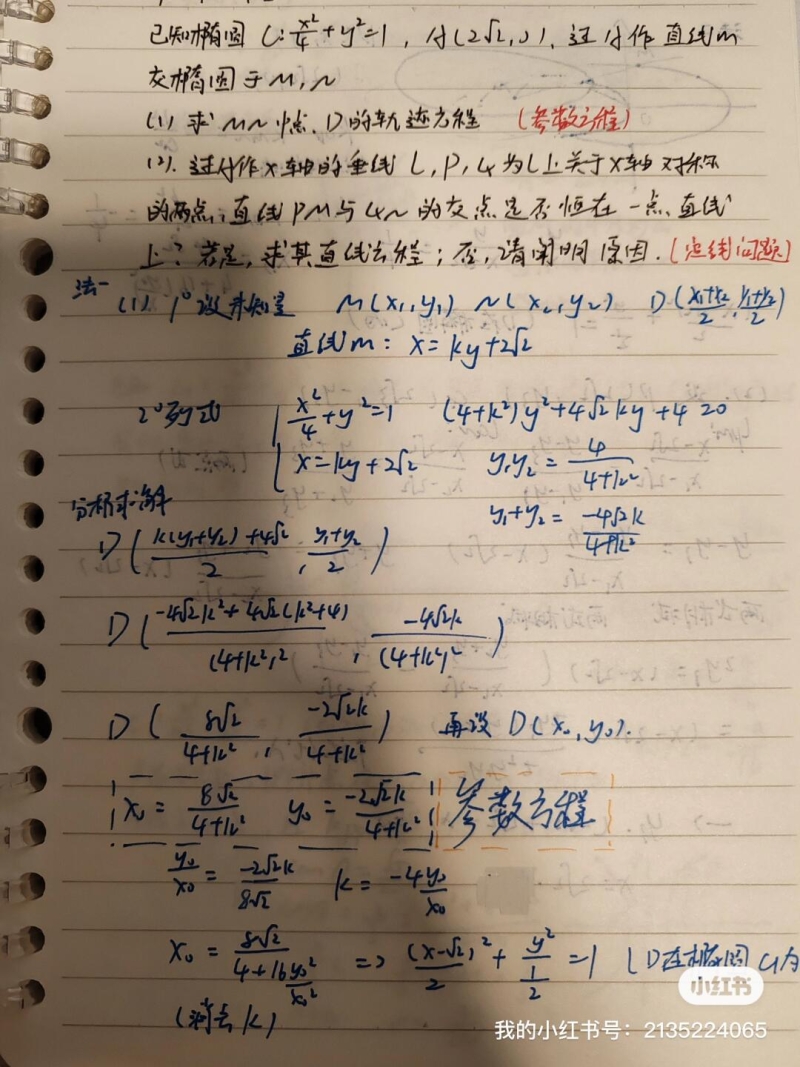 已知椭圆 C: x²/4 + y² = 1, A(2√2, 0), 过A作直线m
交椭圆于M, N
(1) 求MN中点D的轨迹方程 (参数方程)
(2). 过A作x轴的垂线 l, P, Q为l上关于x轴对称
的两点, 直线PM与QN的交点是否恒在一点直线
上? 若是, 求其直线方程; 否, 请阐明原因. (定线问题)
法一 (1) 1° 设未知量 M(x₁, y₁) N(x₂, y₂) D((x₁+x₂)/2, (y₁+y₂)/2)
直线m: x = ky + 2√2
2° 列式 { x²/4 + y² = 1 (4+k²)y² + 4√2ky + 4 = 0
x = ky + 2√2 y₁y₂ = 4/(4+k²)
分析求解 y₁+y₂ = -4√2k/(4+k²)
D((k(y₁+y₂)+4√2)/2, (y₁+y₂)/2)
D((-4√2k²+4√2(k²+4))/((4+k²)2), -4√2k/((4+k²)2))
D(8√2/(4+k²), -2√2k/(4+k²)) 再设 D(x₀, y₀).
x₀ = 8√2/(4+k²) y₀ = -2√2k/(4+k²) 参数方程
y₀/x₀ = -2√2k/8√2 k = -4y₀/x₀
x₀ = 8√2/(4+16y₀²/x₀²) => (x-√2)²/2 + y²/(1/2) = 1 (D在椭圆C内
(消去k)
小红书
我的小红书号: 2135224065